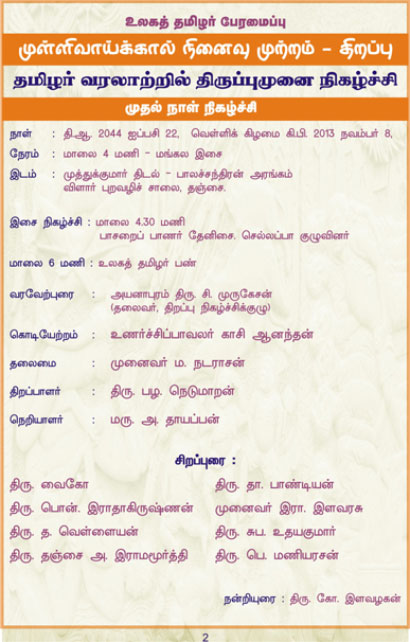 உலகத் தமிழர் பேரமைப்பு
முள்ளிவாய்க்கால் நினைவு முற்றம் – திறப்பு
தமிழர் வரலாற்றில் திருப்புமுனை நிகழ்ச்சி
முதல் நாள் நிகழ்ச்சி
நாள் : தி.ஆ. 2044 ஐப்பசி 22, வெள்ளிக் கிழமை கி.பி. 2013 நவம்பர் 8,
நேரம் : மாலை 4 மணி – மங்கல இசை
இடம் : முத்துக்குமார் திடல் – பாலச்சந்திரன் அரங்கம்
விளார் புறவழிச் சாலை, தஞ்சை.
இசை நிகழ்ச்சி : மாலை 4.30 மணி
பாசறைப் பாணர் தேனிசை. செல்லப்பா குழுவினர்
மாலை 6 மணி : உலகத் தமிழர் பண்
வரவேற்புரை : அயனாபுரம் திரு. சி. முருகேசன்
(தலைவர், திறப்பு நிகழ்ச்சிக்குழு)
கொடியேற்றம் : உணர்ச்சிப்பாவலர் காசி ஆனந்தன்
தலைமை : முனைவர் ம. நடராசன்
திறப்பாளர் : திரு. பழ. நெடுமாறன்
நெறியாளர் : மரு. அ. தாயப்பன்
சிறப்புரை :
திரு. வைகோ திரு. தா. பாண்டியன்
திரு. பொன். இராதாகிருஷ்ணன் முனைவர் இரா. இளவரசு
திரு. த. வெள்ளையன் திரு. சுப. உதயகுமார்
திரு. தஞ்சை அ. இராமமூர்த்தி திரு. பெ. மணியரசன்
நன்றியுரை : திரு. கோ. இளவழகன்
2